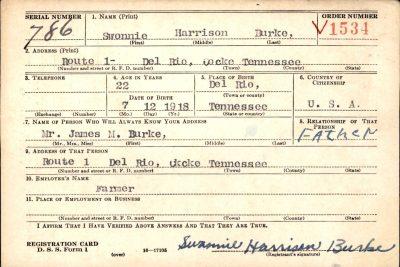 SERIAL NUMBER 1. NAME (Print) ORDER NUMBER
786 Swonnie Harrison Burke, √1534
(First) (Middle) (Last)
2. ADDRESS (Print)
Route 1- Del Rio, Cocke Tennessee
(Number and street or R. F. D. number) (Town) (County) (State)
3. TELEPHONE 4. AGE IN YEARS 5. PLACE OF BIRTH 6. COUNTRY OF CITIZENSHIP
22 Del Rio,
(Town or county)
DATE OF BIRTH
7 12 1918 Tennessee U. S. A.
(Exchange) (Number) (Mo.) (Day) (Yr.) (State or country)
7. NAME OF PERSON WHO WILL ALWAYS KNOW YOUR ADDRESS 8. RELATIONSHIP OF THAT PERSON
Mr. James M. Burke, FATHER
(Mr., Mrs., Miss) (First) (Middle) (Last)
9. ADDRESS OF THAT PERSON
Route 1 Del Rio, Cocke Tennessee
(Number and street or R. F. D. number) (Town) (County) (State)
10. EMPLOYER'S NAME
Farmer
11. PLACE OF EMPLOYMENT OR BUSINESS
(Number and street or R. F. D. number) (Town) (County) (State)
I AFFIRM THAT I HAVE VERIFIED ABOVE ANSWERS AND THAT THEY ARE TRUE.
REGISTRATION CARD
D. S. S. Form 1 (over) 16—17105 Swannie Harrison Burke
(Registrant's signature)